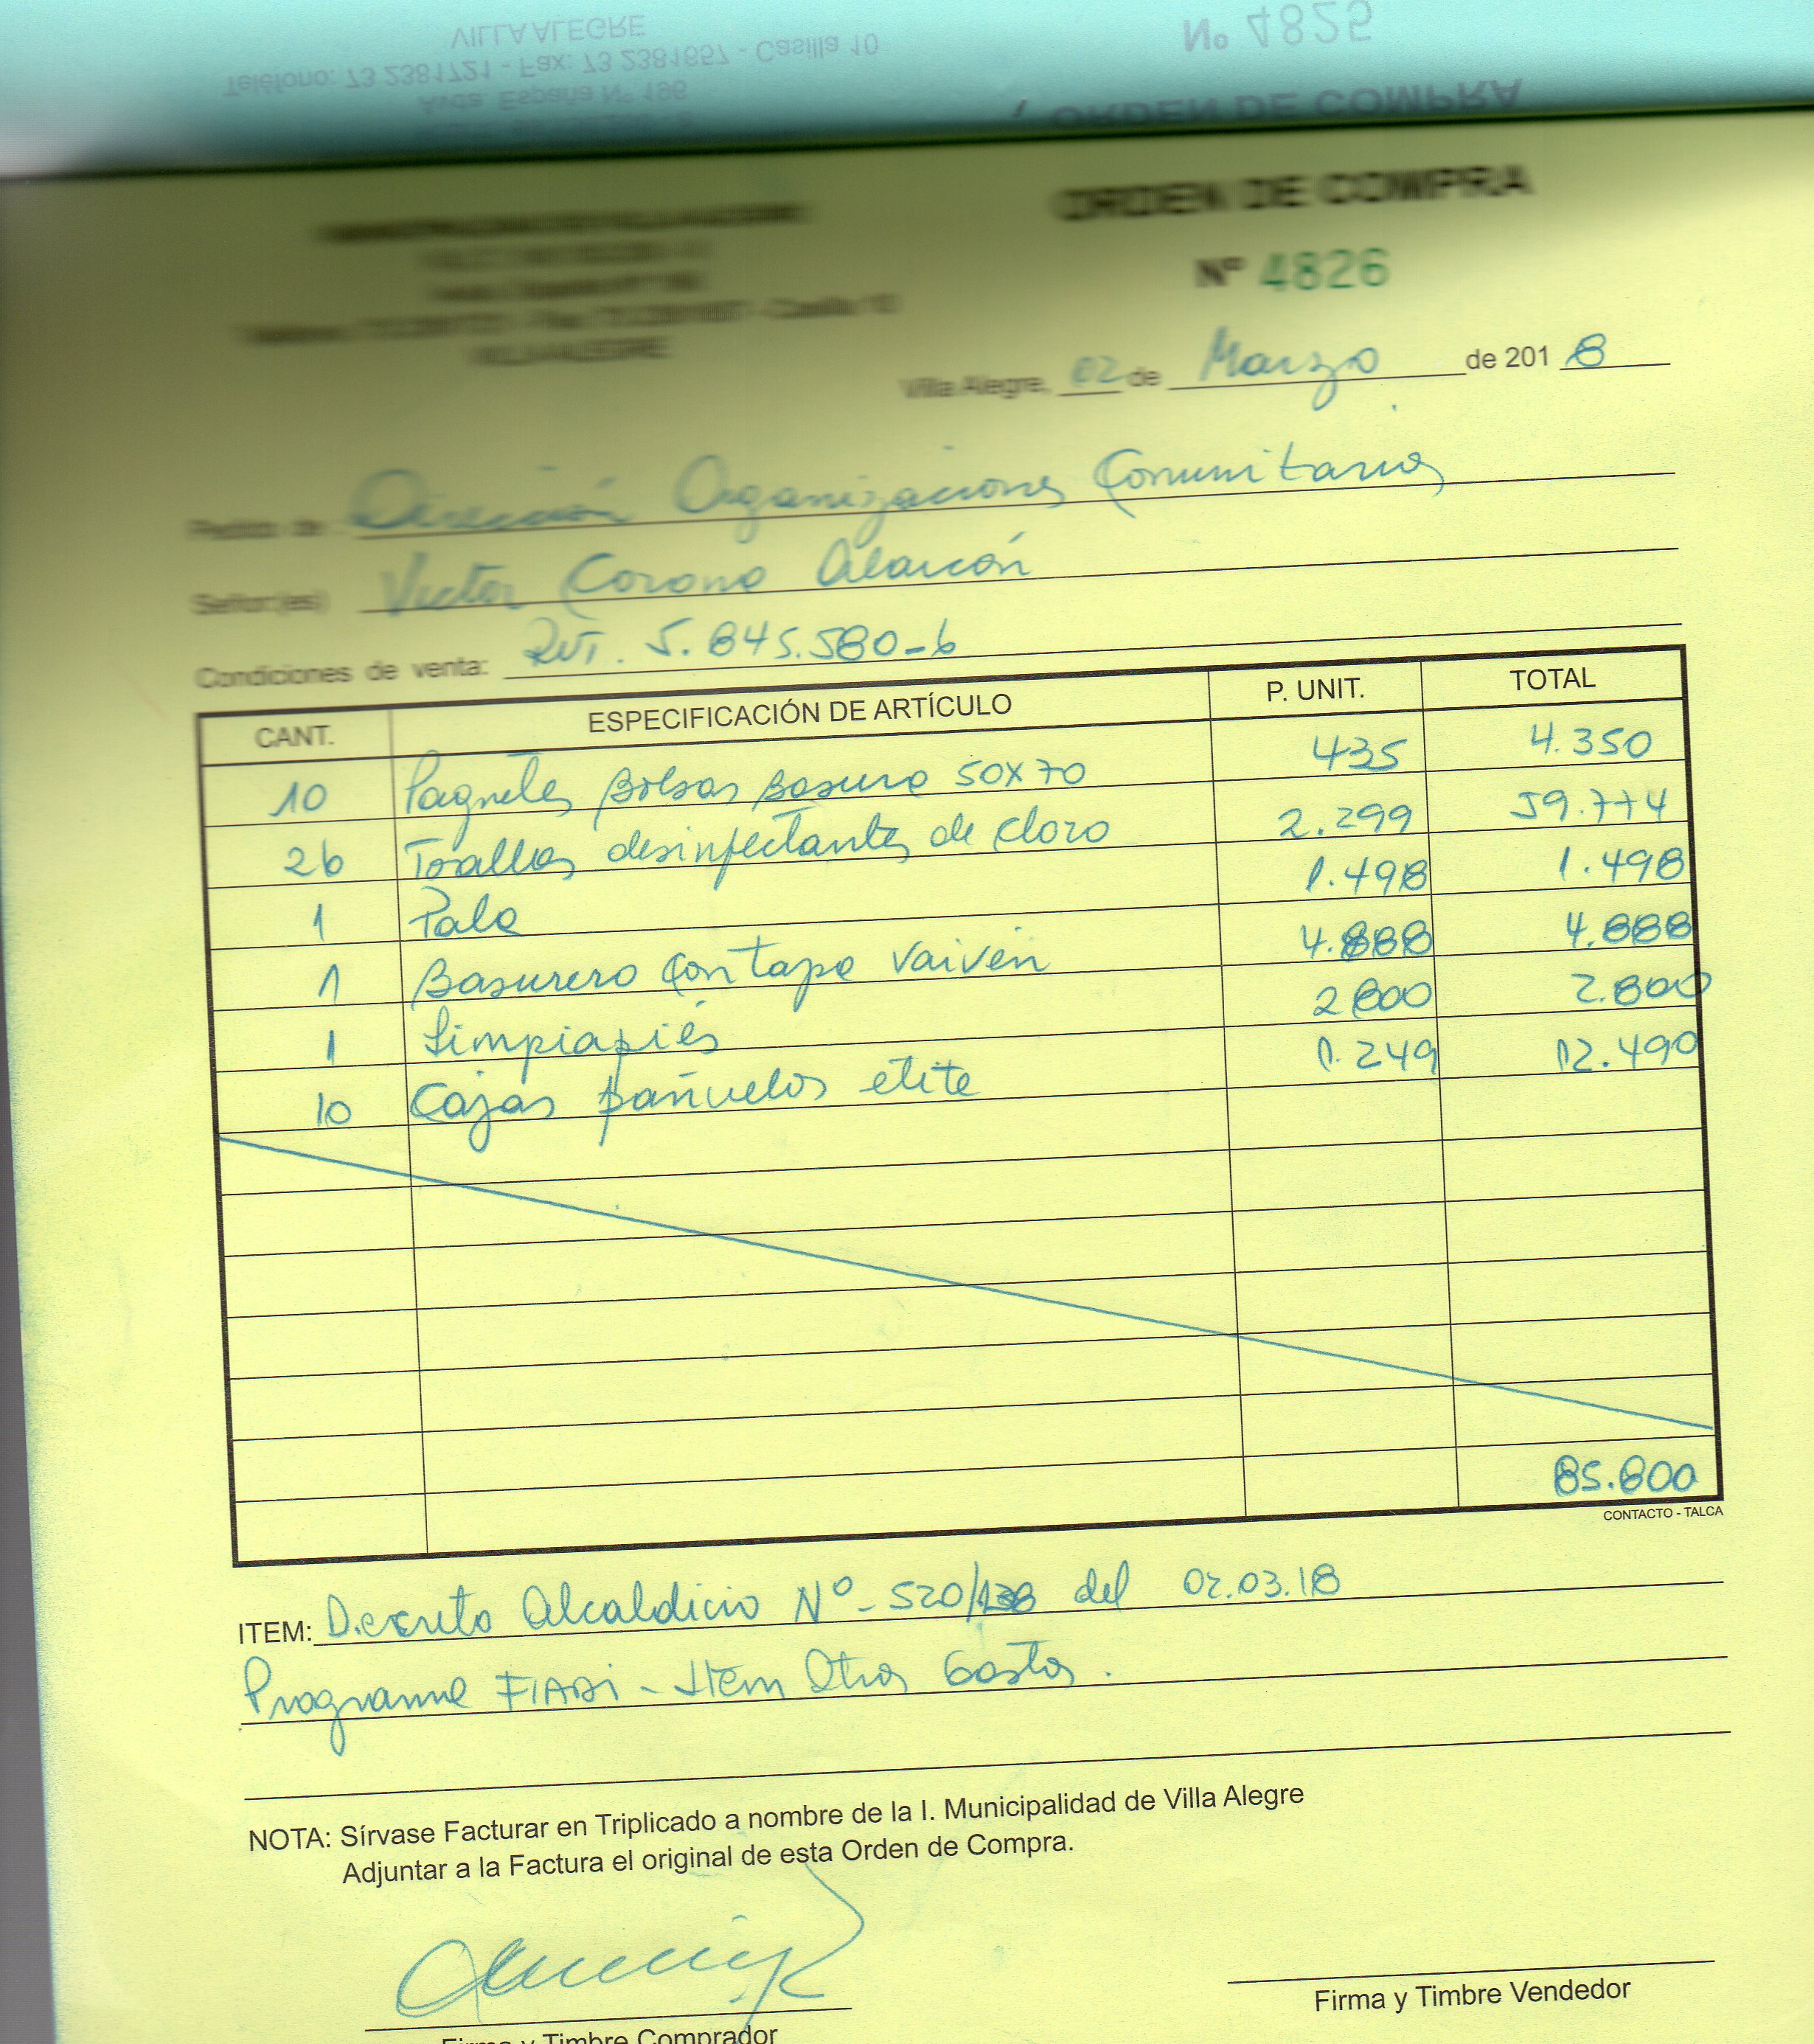 VILLA ALEGRE
Teléfono: 73 2381721 - Fax: 73 2381657 - Casilla 10
Avda. España Nº 196
Nº 4825
ORDEN DE COMPRA
ORDEN DE COMPRA
Nº 4826
VILLA ALEGRE
Villa Alegre, 02 de Marzo de 2018
Pedido de: Dirección Organizaciones Comunitarias
Señor:(es) Victor Corona Alarcón
Condiciones de venta: Rut. 5.845.580-6
CANT. ESPECIFICACIÓN DE ARTÍCULO P. UNIT. TOTAL
10 Paquetes Bolsas Basura 50x70 435 4.350
26 Toallas desinfectantes de cloro 2.299 59.774
1 Pala 1.498 1.498
1 Basurero con tapa vaivén 4.888 4.888
1 Limpiapiés 2800 2.800
10 Cajas pañuelos elite 1.249 12.490
85.800
CONTACTO - TALCA
ITEM: Decreto Alcaldicio Nº- 520/138 del 02.03.18
Programa FIADI - Item Otros Gastos.
NOTA: Sírvase Facturar en Triplicado a nombre de la I. Municipalidad de Villa Alegre
Adjuntar a la Factura el original de esta Orden de Compra.
Firma y Timbre Vendedor
Firma y Timbre Comprador